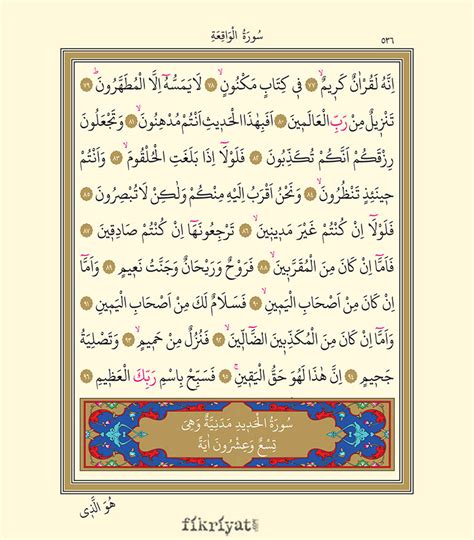 سُورَةُ الْوَاقِعَةِ ٥٣٦
اِنَّهُ لَقُرْاٰنٌ كَر۪يمٌۙ ﴿٧٧﴾ ف۪ي كِتَابٍ مَكْنُونٍۙ ﴿٧٨﴾ لَا يَمَسُّهُٓ اِلَّا الْمُطَهَّرُونَۜ ﴿٧٩﴾
تَنْز۪يلٌ مِنْ رَبِّ الْعَالَم۪ينَ ﴿٨٠﴾ اَفَبِهٰذَا الْحَد۪يثِ اَنْتُمْ مُدْهِنُونَۙ ﴿٨١﴾ وَتَجْعَلُونَ
رِزْقَكُمْ اَنَّكُمْ تُكَذِّبُونَ ﴿٨٢﴾ فَلَوْلَٓا اِذَا بَلَغَتِ الْحُلْقُومَۙ ﴿٨٣﴾ وَاَنْتُمْ
ح۪ينَئِذٍ تَنْظُرُونَۙ ﴿٨٤﴾ وَنَحْنُ اَقْرَبُ اِلَيْهِ مِنْكُمْ وَلٰكِنْ لَا تُبْصِرُونَ ﴿٨٥﴾
فَلَوْلَٓا اِنْ كُنْتُمْ غَيْرَ مَد۪ين۪ينَۙ ﴿٨٦﴾ تَرْجِعُونَهَٓا اِنْ كُنْتُمْ صَادِق۪ينَ ﴿٨٧﴾
فَاَمَّٓا اِنْ كَانَ مِنَ الْمُقَرَّب۪ينَۙ ﴿٨٨﴾ فَرَوْحٌ وَرَيْحَانٌ وَجَنَّتُ نَع۪يمٍ ﴿٨٩﴾ وَاَمَّٓا
اِنْ كَانَ مِنْ اَصْحَابِ الْيَم۪ينِۙ ﴿٩٠﴾ فَسَلَامٌ لَكَ مِنْ اَصْحَابِ الْيَم۪ينِ ﴿٩١﴾
وَاَمَّٓا اِنْ كَانَ مِنَ الْمُكَذِّب۪ينَ الضَّٓالّ۪ينَۙ ﴿٩٢﴾ فَنُزُلٌ مِنْ حَم۪يمٍۙ ﴿٩٣﴾ وَتَصْلِيَةُ
جَح۪يمٍ ﴿٩٤﴾ اِنَّ هٰذَا لَهُوَ حَقُّ الْيَق۪ينِۚ ﴿٩٥﴾ فَسَبِّحْ بِاسْمِ رَبِّكَ الْعَظ۪يمِ ﴿٩٦﴾
سُورَةُ الْحَد۪يدِ مَدَنِيَّةٌ وَهِيَ
تِسْعٌ وَعِشْرُونَ اٰيَةً
هُوَ الَّذ۪ي
fikriyat